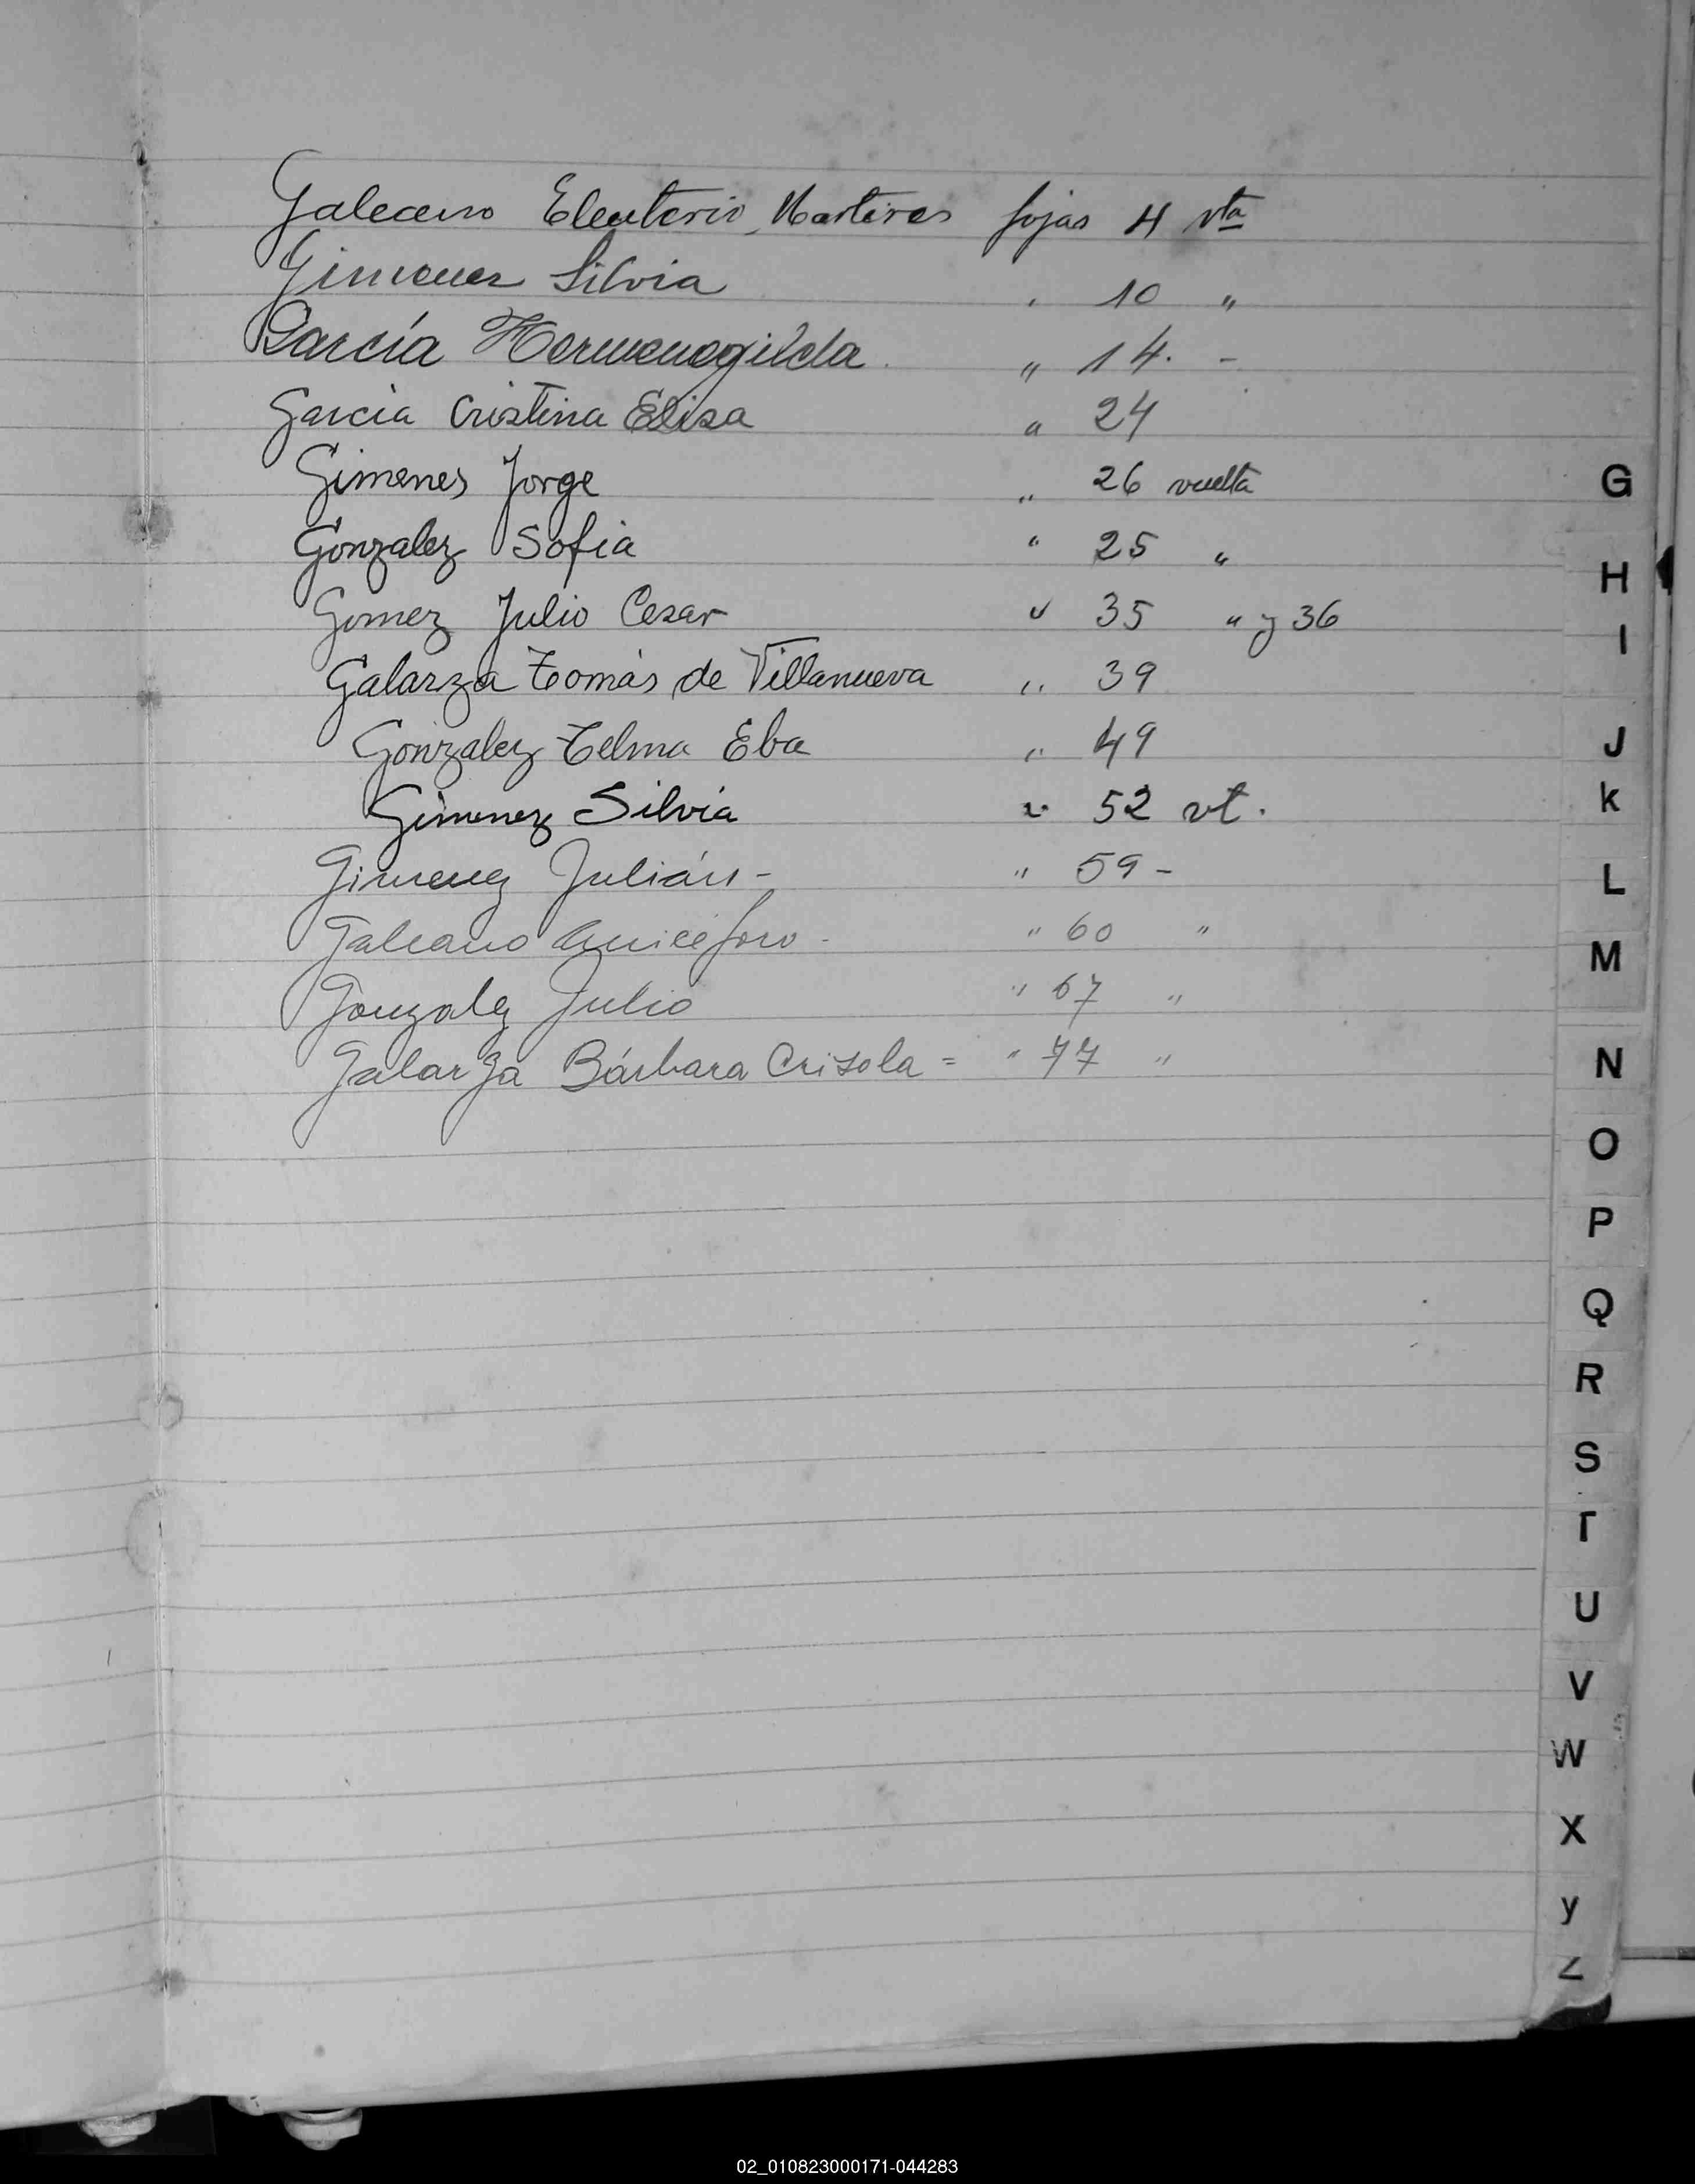 Galeano Eleuterio Martires fojas 4 vta
Gimenez Silvia " 10 "
García Hermenegilda " 14. -
Garcia Cristina Elisa " 24
Gimenes Jorge " 26 vuelta
Gonzalez Sofia " 25 "
Gomez Julio Cesar " 35 " y 36
Galarza Tomás de Villanueva " 39
Gonzalez Telma Eba " 49
Gimenez Silvia " 52 vt.
Gimenez Julián - " 59 -
Galeano - " 60 "
Gonzalez Julio " 67 "
Galarza Bárbara Crisola = " 77 "
G
H
I
J
k
L
M
N
O
P
Q
R
S
T
U
V
W
X
y
Z
02_010823000171-044283